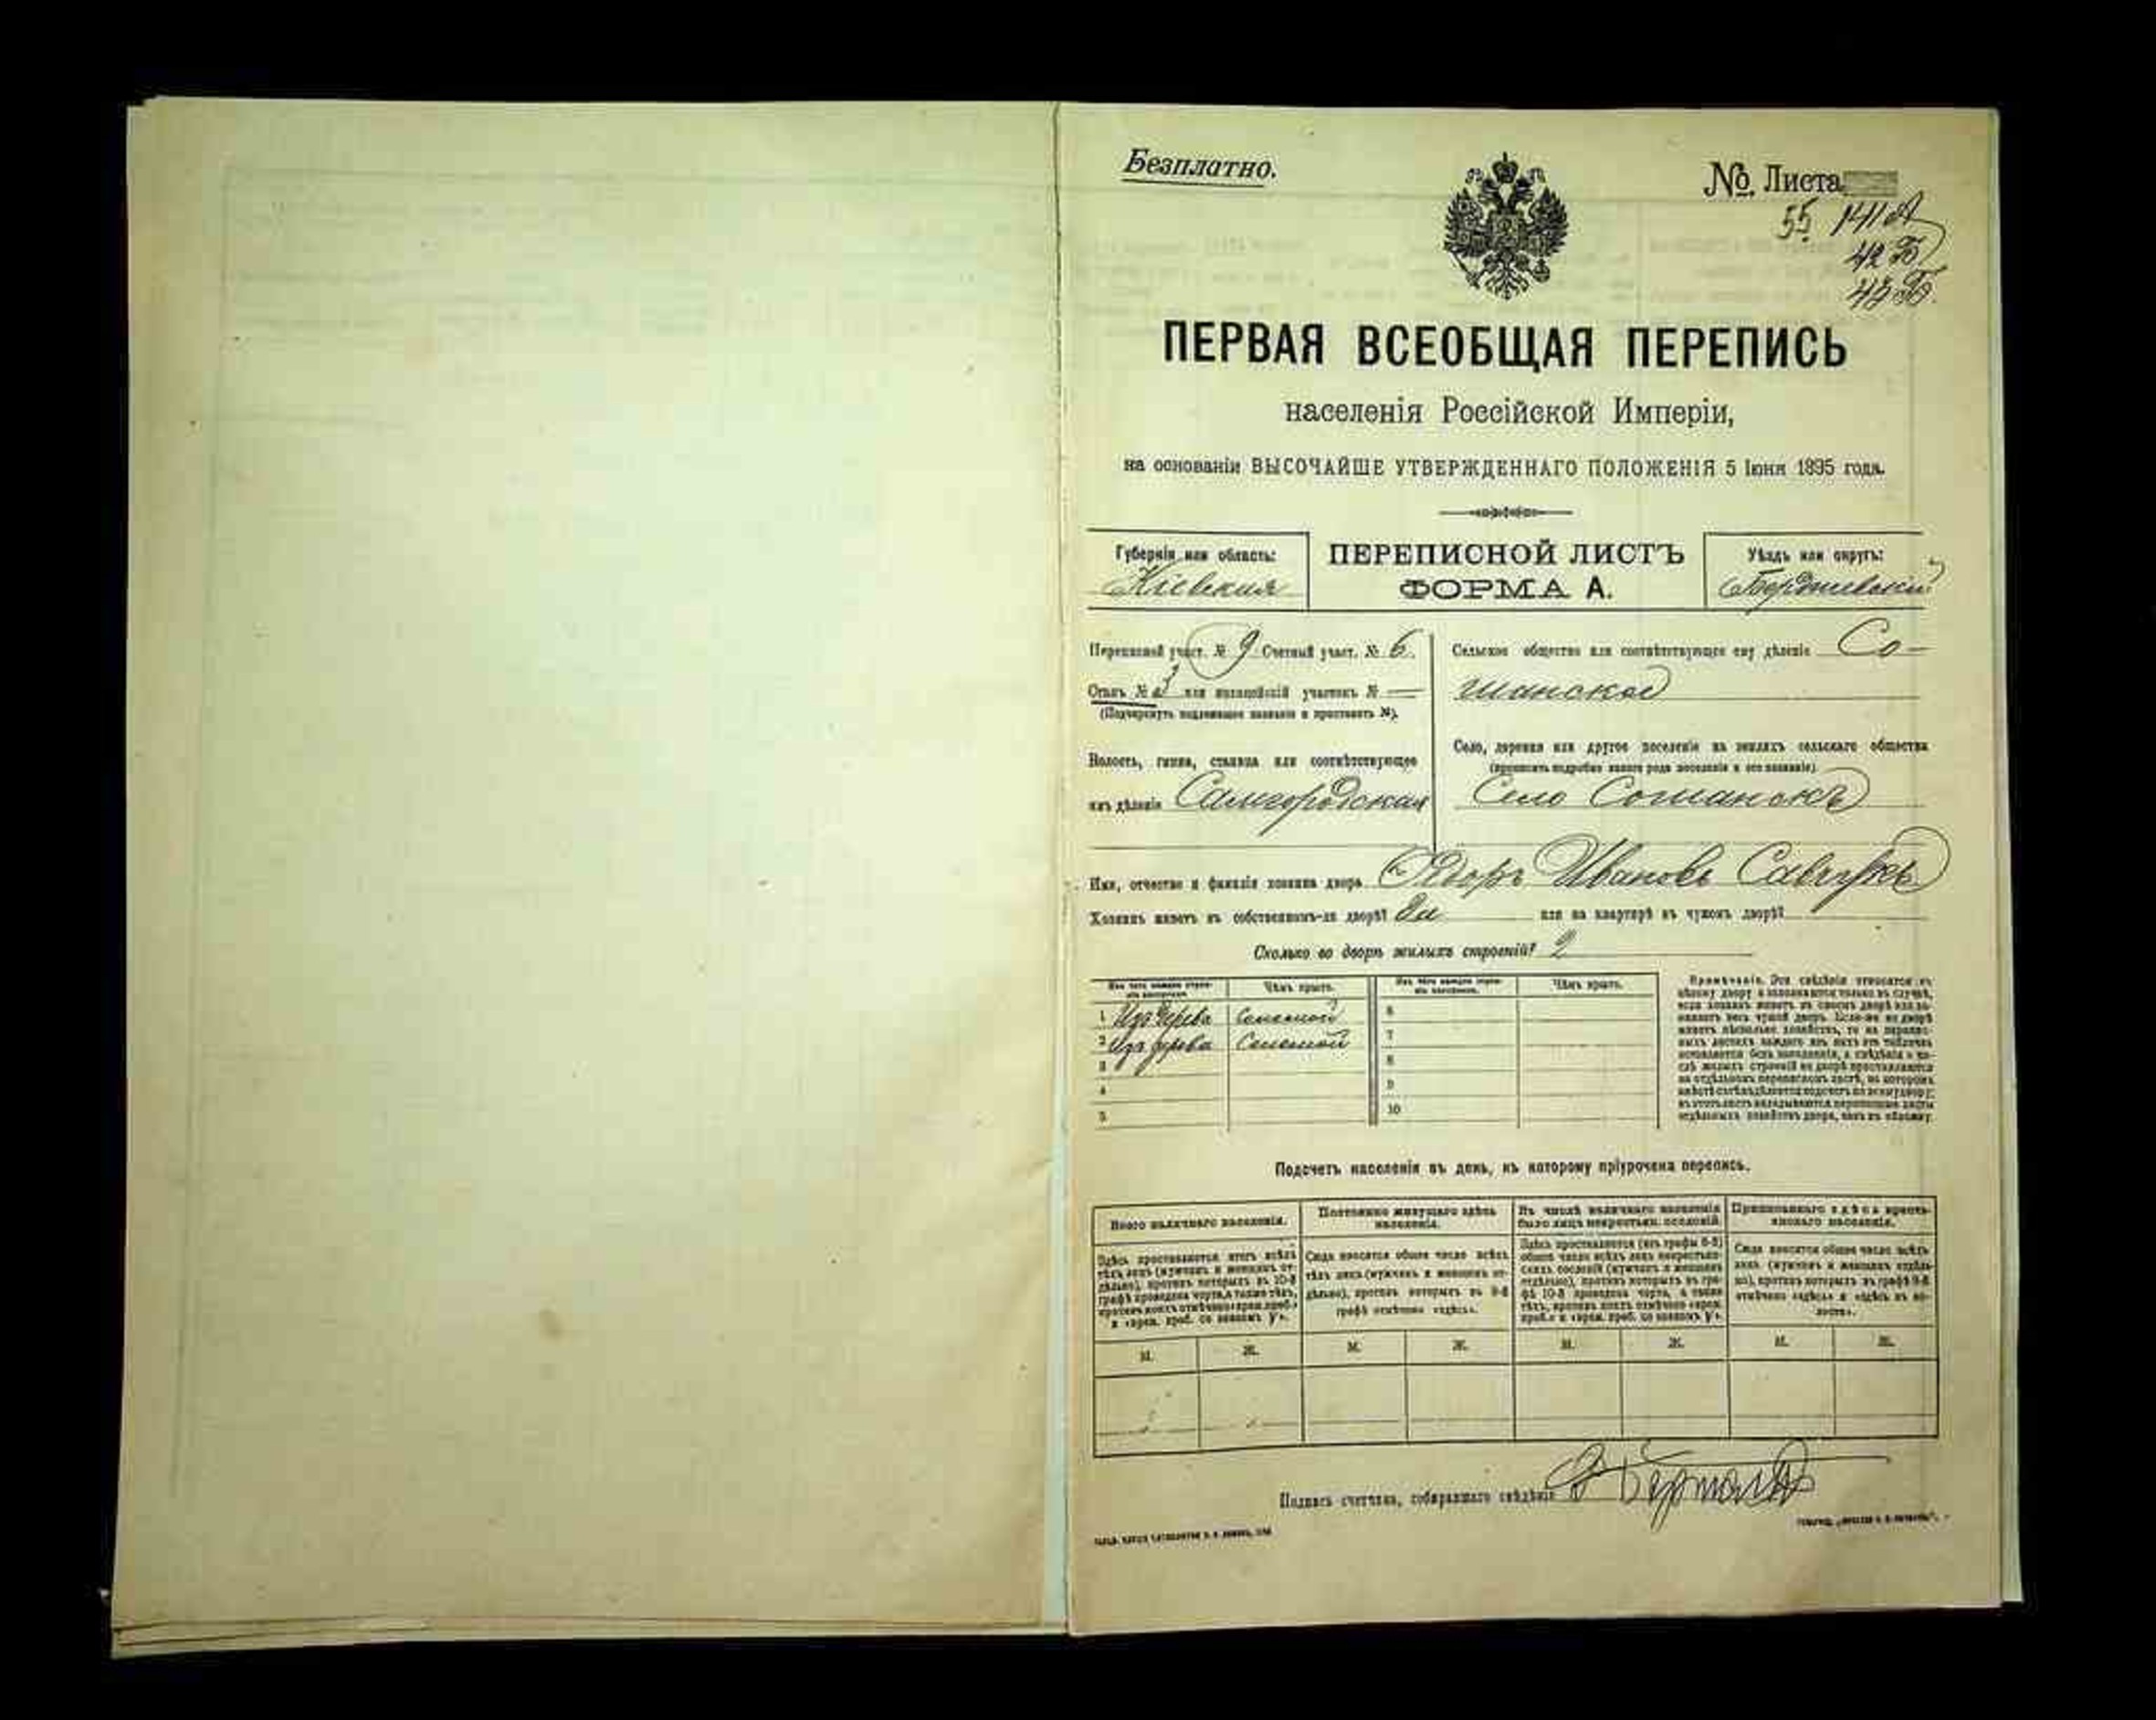 Безплатно.
№ Листа
55 141 А
42 Б
43 Б.
ПЕРВАЯ ВСЕОБЩАЯ ПЕРЕПИСЬ
населенія Россійской Имперіи,
на основаніи ВЫСОЧАЙШЕ УТВЕРЖДЕННАГО ПОЛОЖЕНІЯ 5 Іюня 1895 года.
Губернія или область:
Кіевская
ПЕРЕПИСНОЙ ЛИСТЪ
ФОРМА А.
Уѣздъ или округъ:
Бердичевскій
Переписной участ. № 9 Счетный участ. № 6.
Станъ № 3 или полицейскій участокъ № —
(Подчеркнуть надлежащее названіе и проставить №).
Волость, гмина, станица или соотвѣтствующее
имъ дѣленіе Самгородская
Сельское общество или соотвѣтствующее ему дѣленіе Со-
шанское
Село, деревня или другое поселеніе на земляхъ сельскаго общества
(прописать подробно какого рода поселеніе и его названіе)
Село Сошанскъ
Имя, отчество и фамилія хозяина двора Ѳедоръ Ивановъ Савчукъ
Хозяинъ живетъ въ собственномъ-ли дворѣ? Да или на квартирѣ въ чужомъ дворѣ?
Сколько во дворѣ жилыхъ строеній? 2
Изъ чего каждое строеніе построено. Чѣмъ крыто. Изъ чего каждое строеніе построено. Чѣмъ крыто.
1 Изъ дерева Соломой 6
2 Изъ дерева Соломой 7
3 8
4 9
5 10
Примѣчаніе. Эти свѣдѣнія относятся къ
цѣлому двору и заполняются только въ случаѣ,
если хозяинъ живетъ въ своемъ дворѣ или за-
нимаетъ весь чужой дворъ. Если-же во дворѣ
живетъ нѣсколько хозяйствъ, то на перепис-
ныхъ листахъ каждаго изъ нихъ эта табличка
оставляется безъ заполненія, а свѣдѣнія о чи-
слѣ жилыхъ строеній во дворѣ проставляются
на отдѣльномъ переписномъ листѣ, на которомъ
вмѣстѣ съ тѣмъ дѣлается подсчетъ по всему двору;
въ этотъ листъ вкладываются переписные листы
отдѣльныхъ хозяйствъ двора, какъ въ обложку.
Подсчетъ населенія въ день, къ которому пріурочена перепись.
Всего наличнаго населенія.
Здѣсь проставляется итогъ всѣхъ
тѣхъ лицъ (мужчинъ и женщинъ от-
дѣльно), противъ которыхъ въ 10-й
графѣ проведена черта, а также тѣхъ,
противъ коихъ отмѣчено «врем. преб.»
и «врем. преб. со знакомъ У».
Постоянно живущаго здѣсь
населенія.
Сюда вносится общее число всѣхъ
тѣхъ лицъ (мужчинъ и женщинъ от-
дѣльно), противъ которыхъ въ 9-й
графѣ отмѣчено «здѣсь».
Въ числѣ наличнаго населенія
было лицъ некрестьян. сословій.
Здѣсь проставляется (изъ графы 6-й)
общее число всѣхъ лицъ некрестьян-
скихъ сословій (мужчинъ и женщинъ
отдѣльно), противъ которыхъ въ гра-
фѣ 10-й проведена черта, а также
тѣхъ, противъ коихъ отмѣчено «врем.
преб.» и «врем. преб. со знакомъ У».
Приписаннаго здѣсь кресть-
янскаго населенія.
Сюда вносится общее число всѣхъ
лицъ (мужчинъ и женщинъ отдѣль-
но), противъ которыхъ въ графѣ 8-й
отмѣчено «здѣсь» и «здѣсь въ во-
лости».
М. Ж. М. Ж. М. Ж. М. Ж.
Подпись счетчика, собиравшаго свѣдѣнія